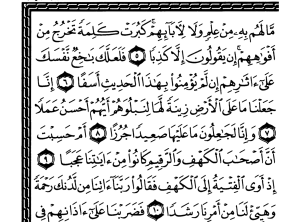 مَّا لَهُم بِهِۦ مِنْ عِلْمٍ وَلَا لِءَابَآئِهِمْ كَبُرَتْ كَلِمَةً تَخْرُجُ مِنْ
أَفْوَٰهِهِمْ إِن يَقُولُونَ إِلَّا كَذِبًا ٥ فَلَعَلَّكَ بَٰخِعٌ نَّفْسَكَ
عَلَىٰٓ ءَاثَٰرِهِمْ إِن لَّمْ يُؤْمِنُوا۟ بِهَٰذَا ٱلْحَدِيثِ أَسَفًا ٦ إِنَّا
جَعَلْنَا مَا عَلَى ٱلْأَرْضِ زِينَةً لَّهَا لِنَبْلُوَهُمْ أَيُّهُمْ أَحْسَنُ عَمَلًا
٧ وَإِنَّا لَجَٰعِلُونَ مَا عَلَيْهَا صَعِيدًا جُرُزًا ٨ أَمْ حَسِبْتَ
أَنَّ أَصْحَٰبَ ٱلْكَهْفِ وَٱلرَّقِيمِ كَانُوا۟ مِنْ ءَايَٰتِنَا عَجَبًا ٩
إِذْ أَوَى ٱلْفِتْيَةُ إِلَى ٱلْكَهْفِ فَقَالُوا۟ رَبَّنَآ ءَاتِنَا مِن لَّدُنكَ رَحْمَةً
وَهَيِّئْ لَنَا مِنْ أَمْرِنَا رَشَدًا ١٠ فَضَرَبْنَا عَلَىٰٓ ءَاذَانِهِمْ فِى